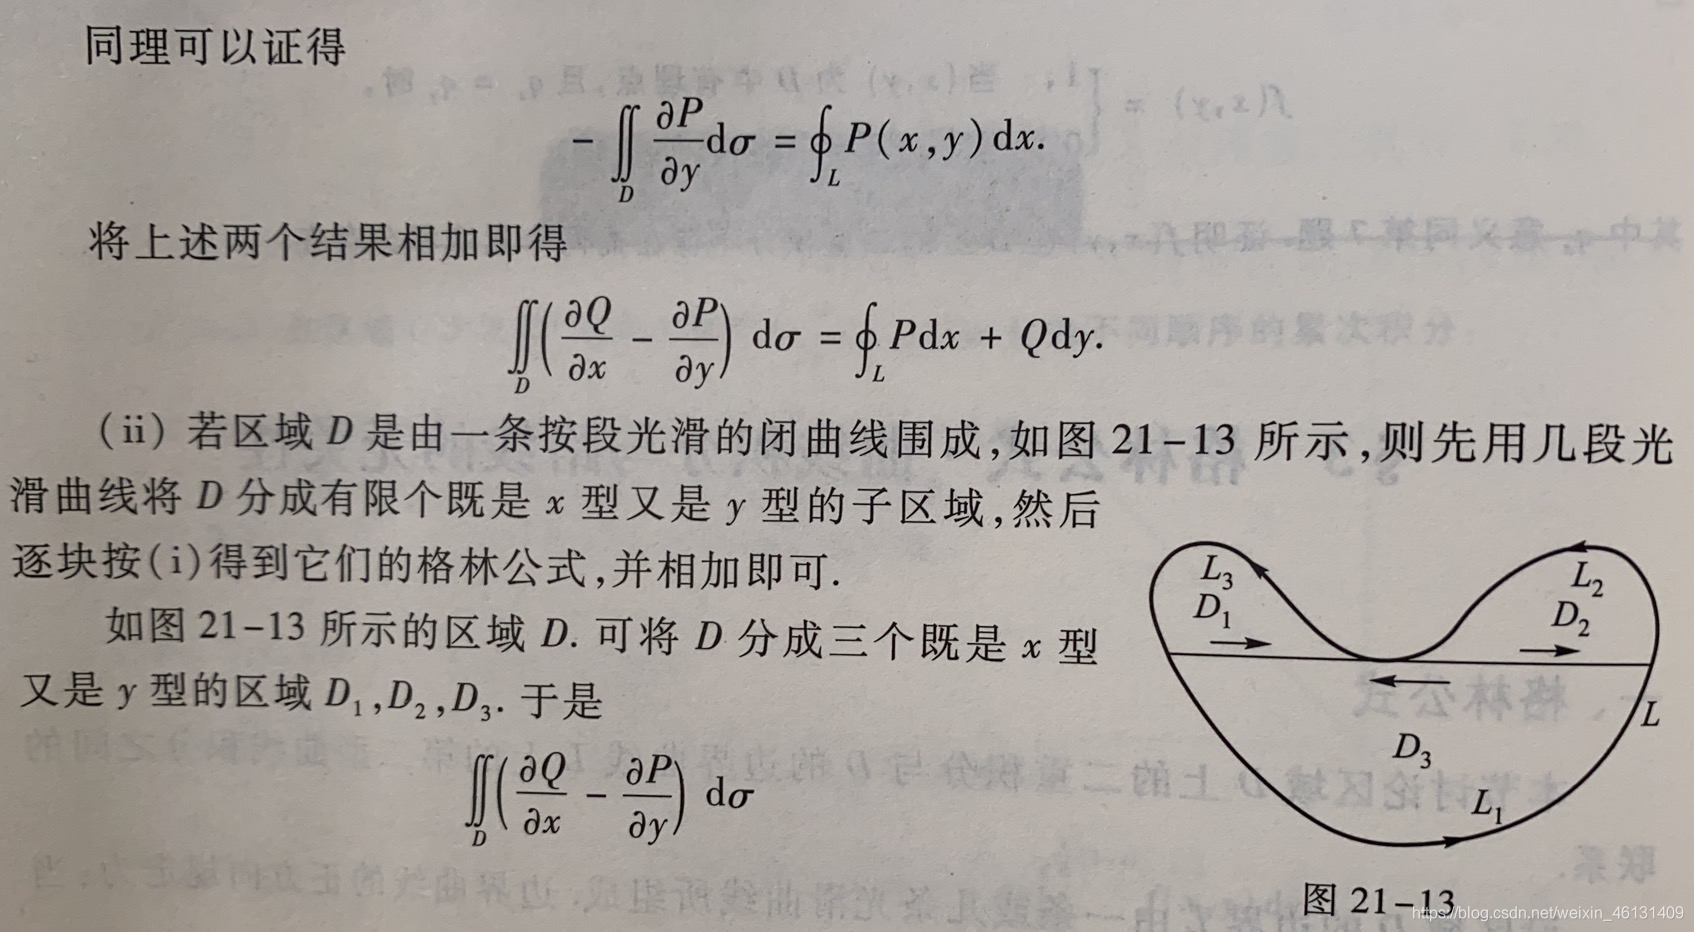 同理可以证得
$-\iint_D \frac{\partial P}{\partial y} \mathrm{d}\sigma = \oint_L P(x,y)\mathrm{d}x.$
将上述两个结果相加即得
$\iint_D \left( \frac{\partial Q}{\partial x} - \frac{\partial P}{\partial y} \right) \mathrm{d}\sigma = \oint_L P\mathrm{d}x + Q\mathrm{d}y.$
(ii) 若区域 D 是由一条按段光滑的闭曲线围成,如图 21-13 所示,则先用几段光
滑曲线将 D 分成有限个既是 x 型又是 y 型的子区域,然后
逐块按(i)得到它们的格林公式,并相加即可.
如图 21-13 所示的区域 D. 可将 D 分成三个既是 x 型
又是 y 型的区域 D₁,D₂,D₃. 于是
$\iint_D \left( \frac{\partial Q}{\partial x} - \frac{\partial P}{\partial y} \right) \mathrm{d}\sigma$
L₃
D₁
L₂
D₂
L
D₃
L₁
图 21-13
https://blog.csdn.net/weixin_46131409